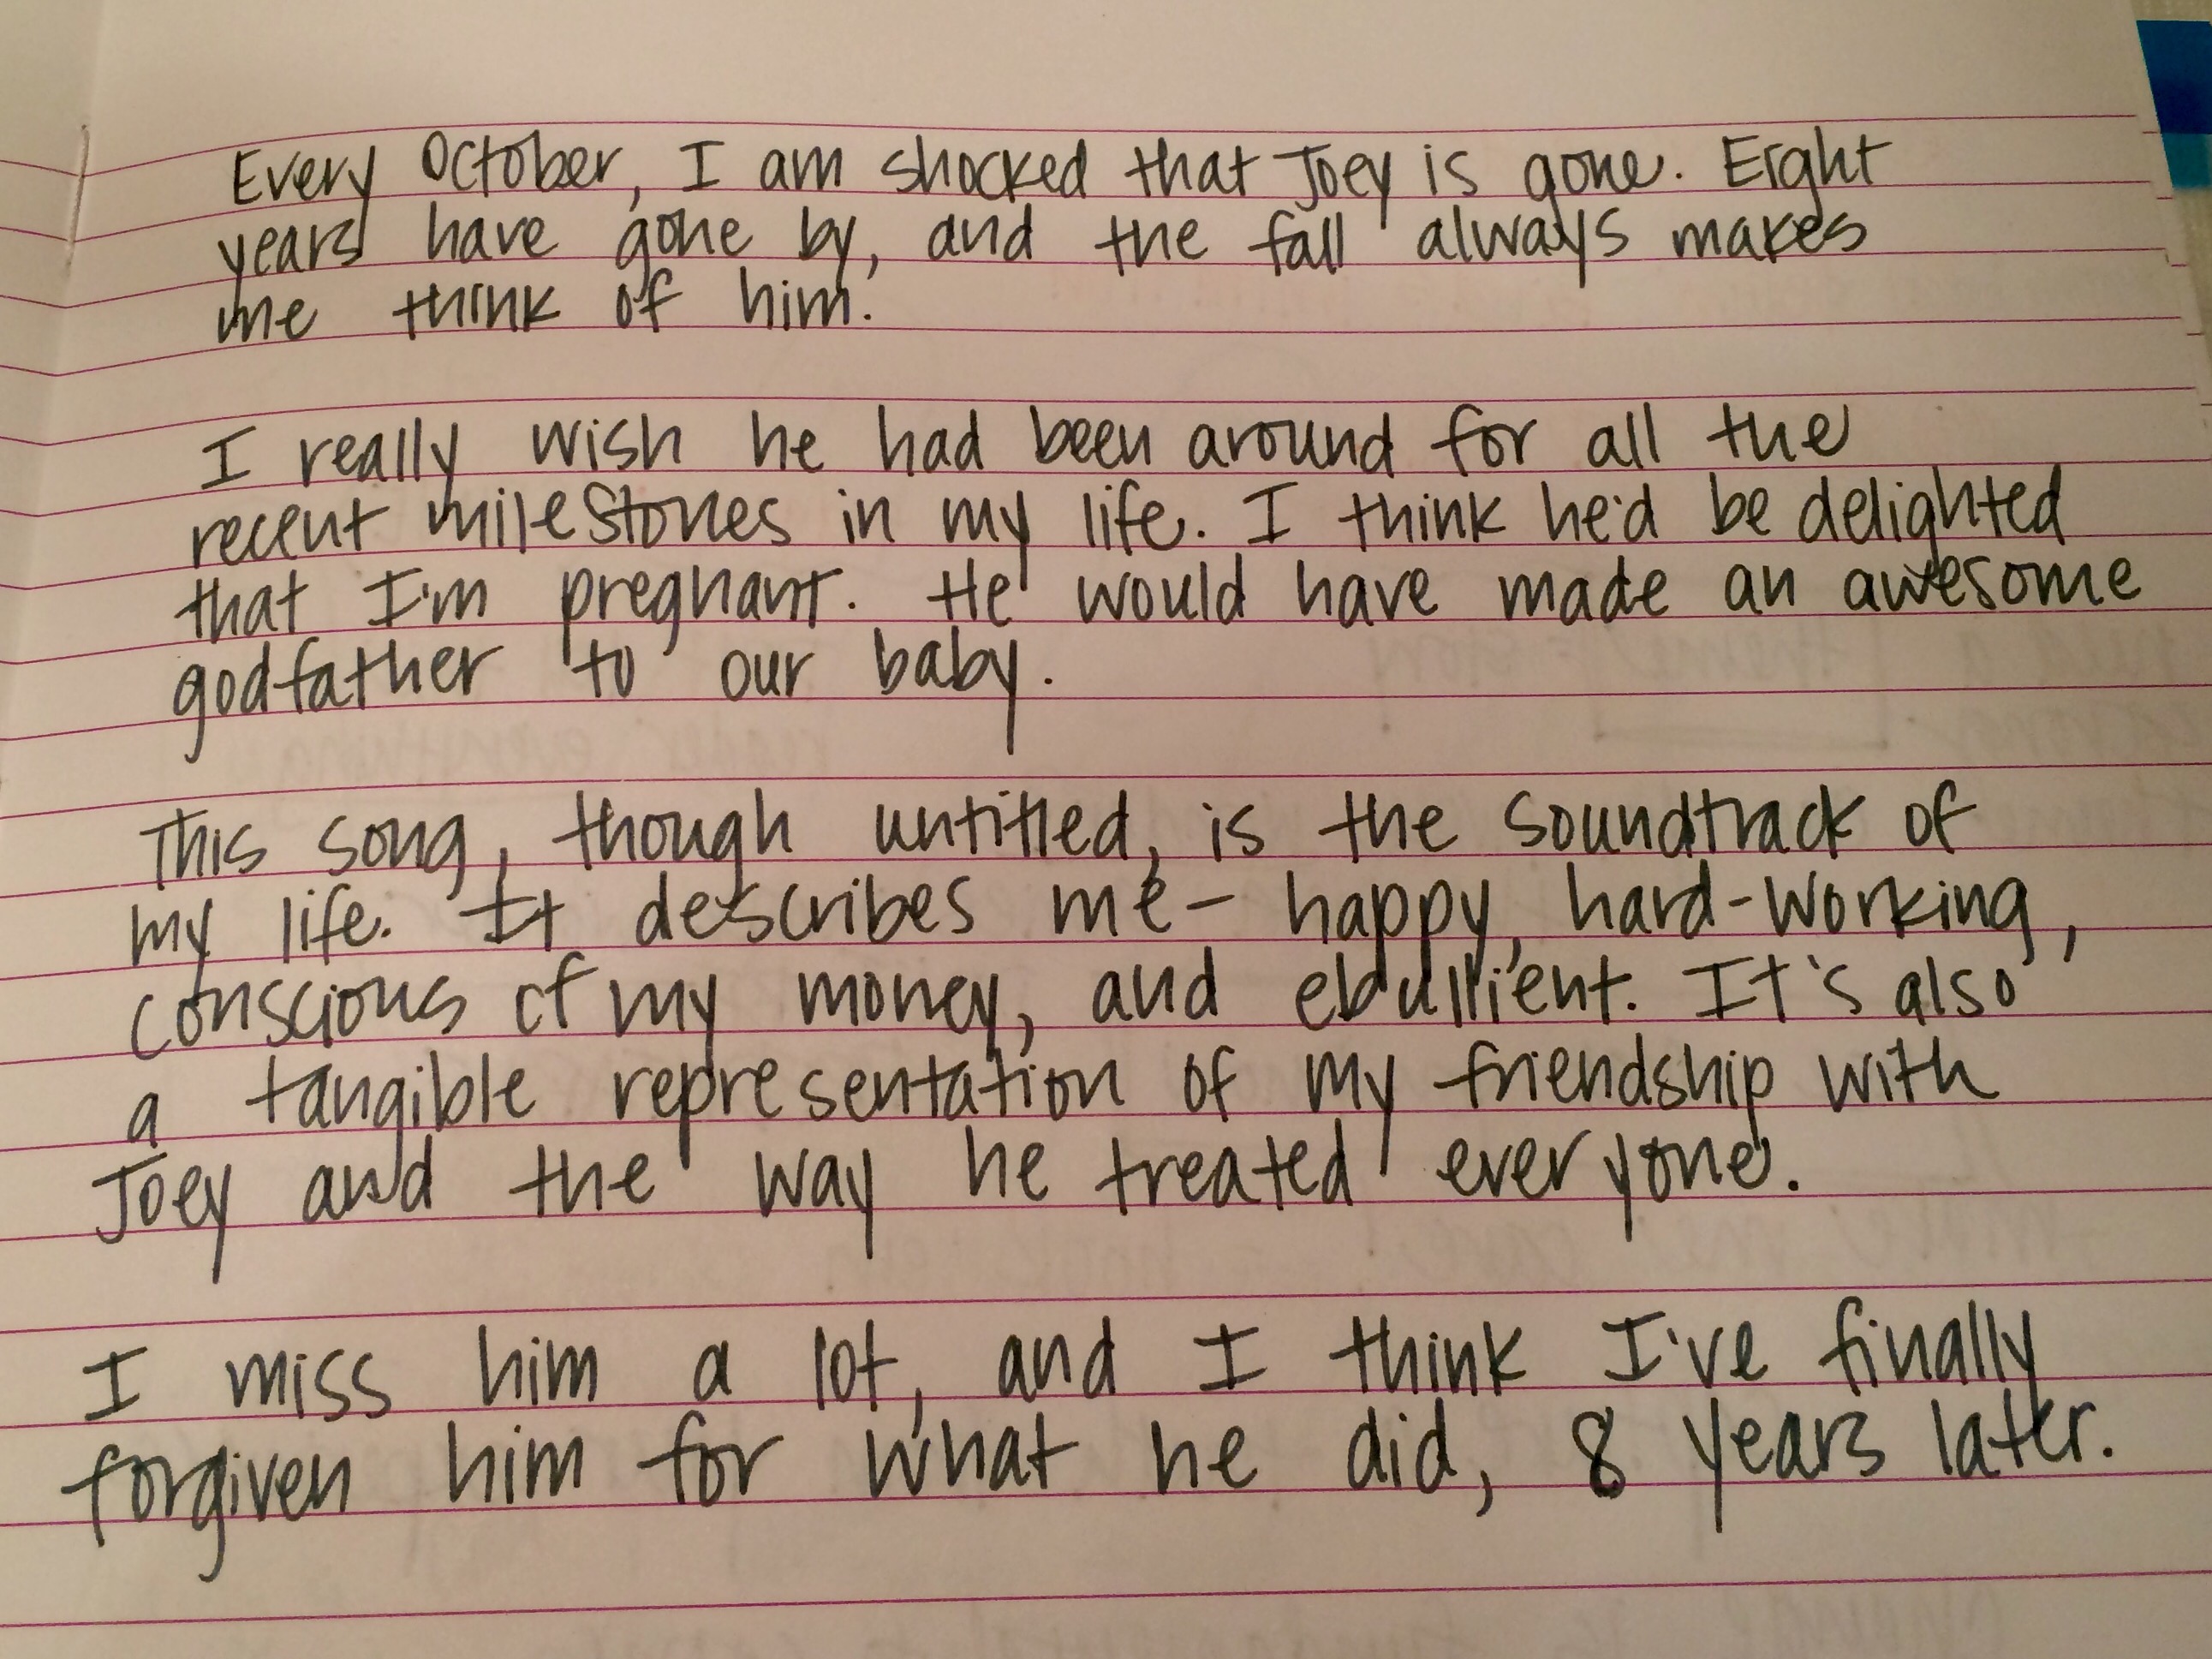 Every October, I am shocked that Joey is gone. Eight
years have gone by, and the fall always makes
me think of him.
I really wish he had been around for all the
recent milestones in my life. I think he'd be delighted
that I'm pregnant. He would have made an awesome
godfather to our baby.
This song, though untitled, is the soundtrack of
my life. It describes me - happy, hard-working,
conscious of my money, and ebullient. It's also
a tangible representation of my friendship with
Joey and the way he treated everyone.
I miss him a lot, and I think I've finally
forgiven him for what he did, 8 years later.